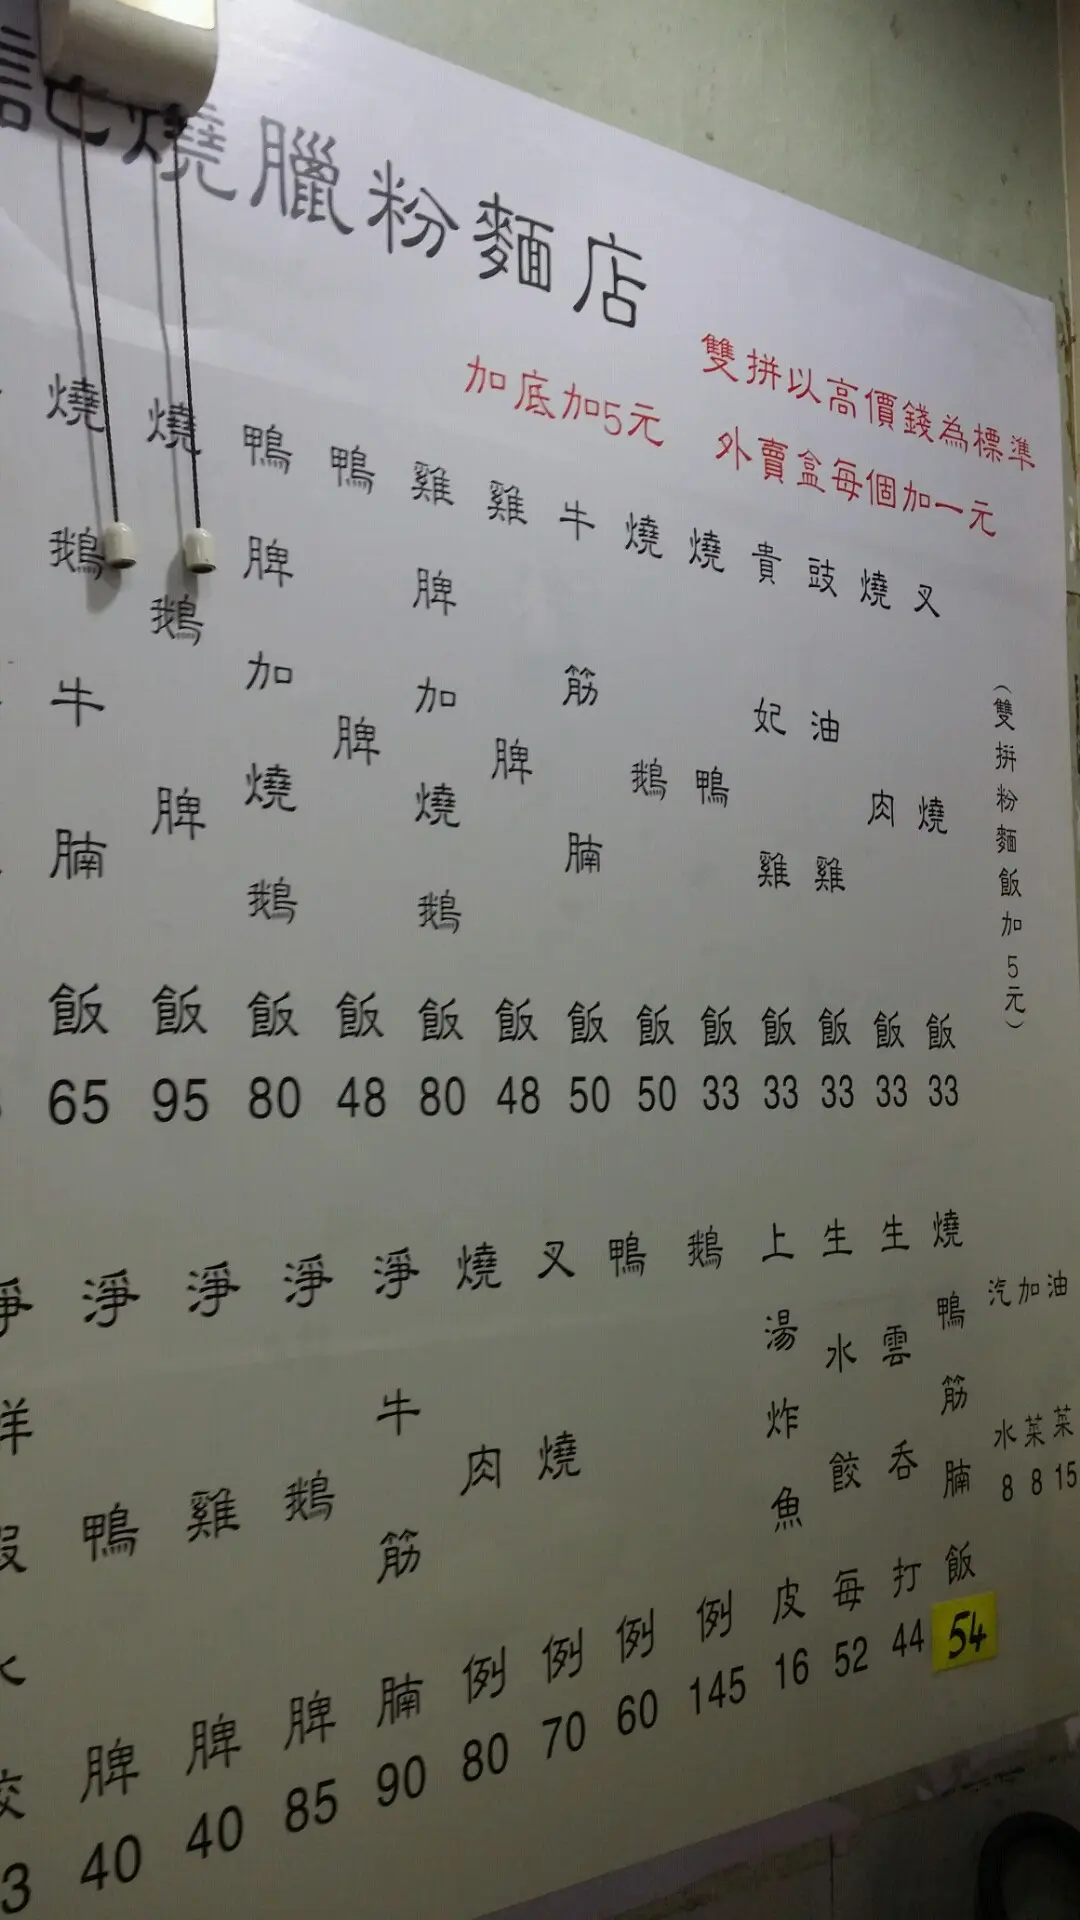 記燒臘粉麵店
雙拼以高價錢為標準
加底加5元 外賣盒每個加一元
(雙拼粉麵飯加5元)
叉燒飯 33
燒肉飯 33
豉油雞飯 33
貴妃雞飯 33
燒鴨飯 33
燒鵝飯 50
牛筋腩飯 50
雞脾飯 48
雞脾加燒鵝飯 80
鴨脾飯 48
鴨脾加燒鵝飯 80
燒鵝脾飯 95
燒鵝牛腩飯 65
油菜 15
加菜 8
汽水 8
燒鴨筋腩飯 54
生雲吞打 44
生水餃每 52
上湯炸魚皮 16
鵝例 145
鴨例 60
叉燒例 70
燒肉例 80
淨牛筋腩 90
淨鵝脾 85
淨雞脾 40
淨鴨脾 40
淨